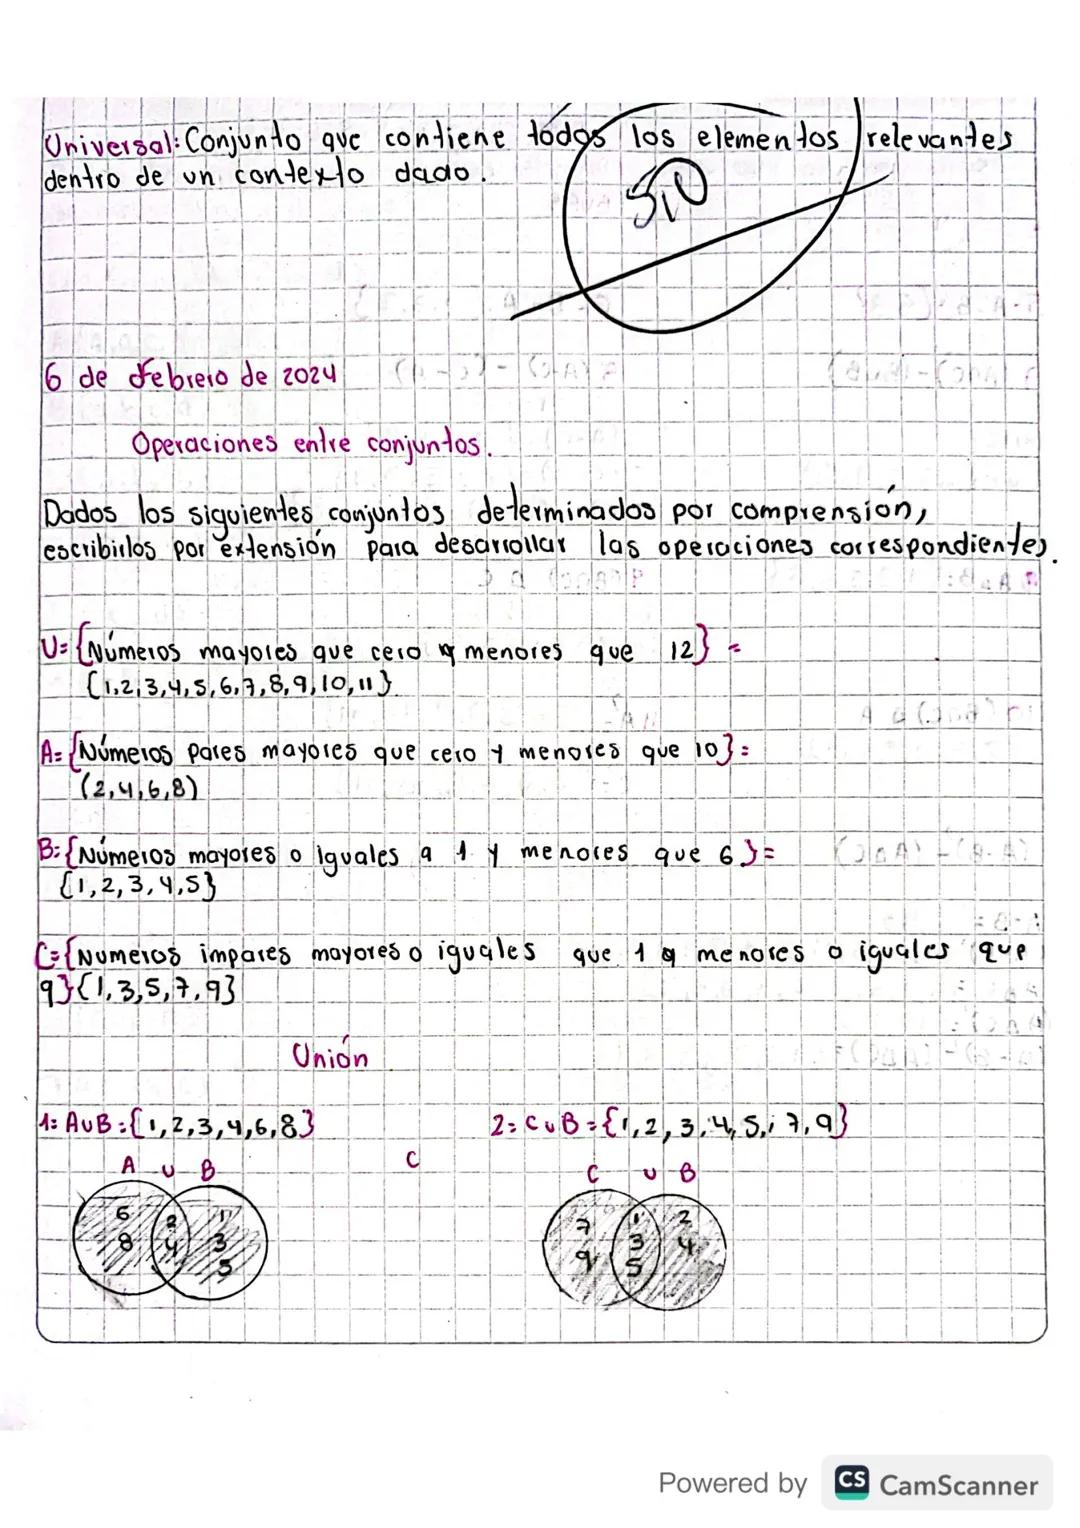 Universal: Conjunto que contiene todos los elementos relevantes
dentro de un contexto dado.
5,0
6 de Febrero de 2024
Operaciones entre conjuntos.
Dados los siguientes conjuntos determinados por comprensión,
escribirlos por extensión para desarrollar las operaciones correspondientes.
U= {Números mayores que cero y menores que 12} =
{1,2,3,4,5,6,7,8,9,10,11}
A= {Números pares mayores que cero y menores que 10}=
(2,4,6,8)
B= {Números mayores o iguales a 1 y menores que 6}=
{1,2,3,4,5}
C={Numeros impares mayores o iguales que 1 y menores o iguales que
9}{1,3,5,7,9}
Unión
1: A∪B={1,2,3,4,6,8} 2: C∪B={1,2,3,4,5,; 7,9}
A ∪ B C C ∪ B
6 2 1 7 1 2
8 4 3 9 3 4
5 5
Powered by CS CamScanner